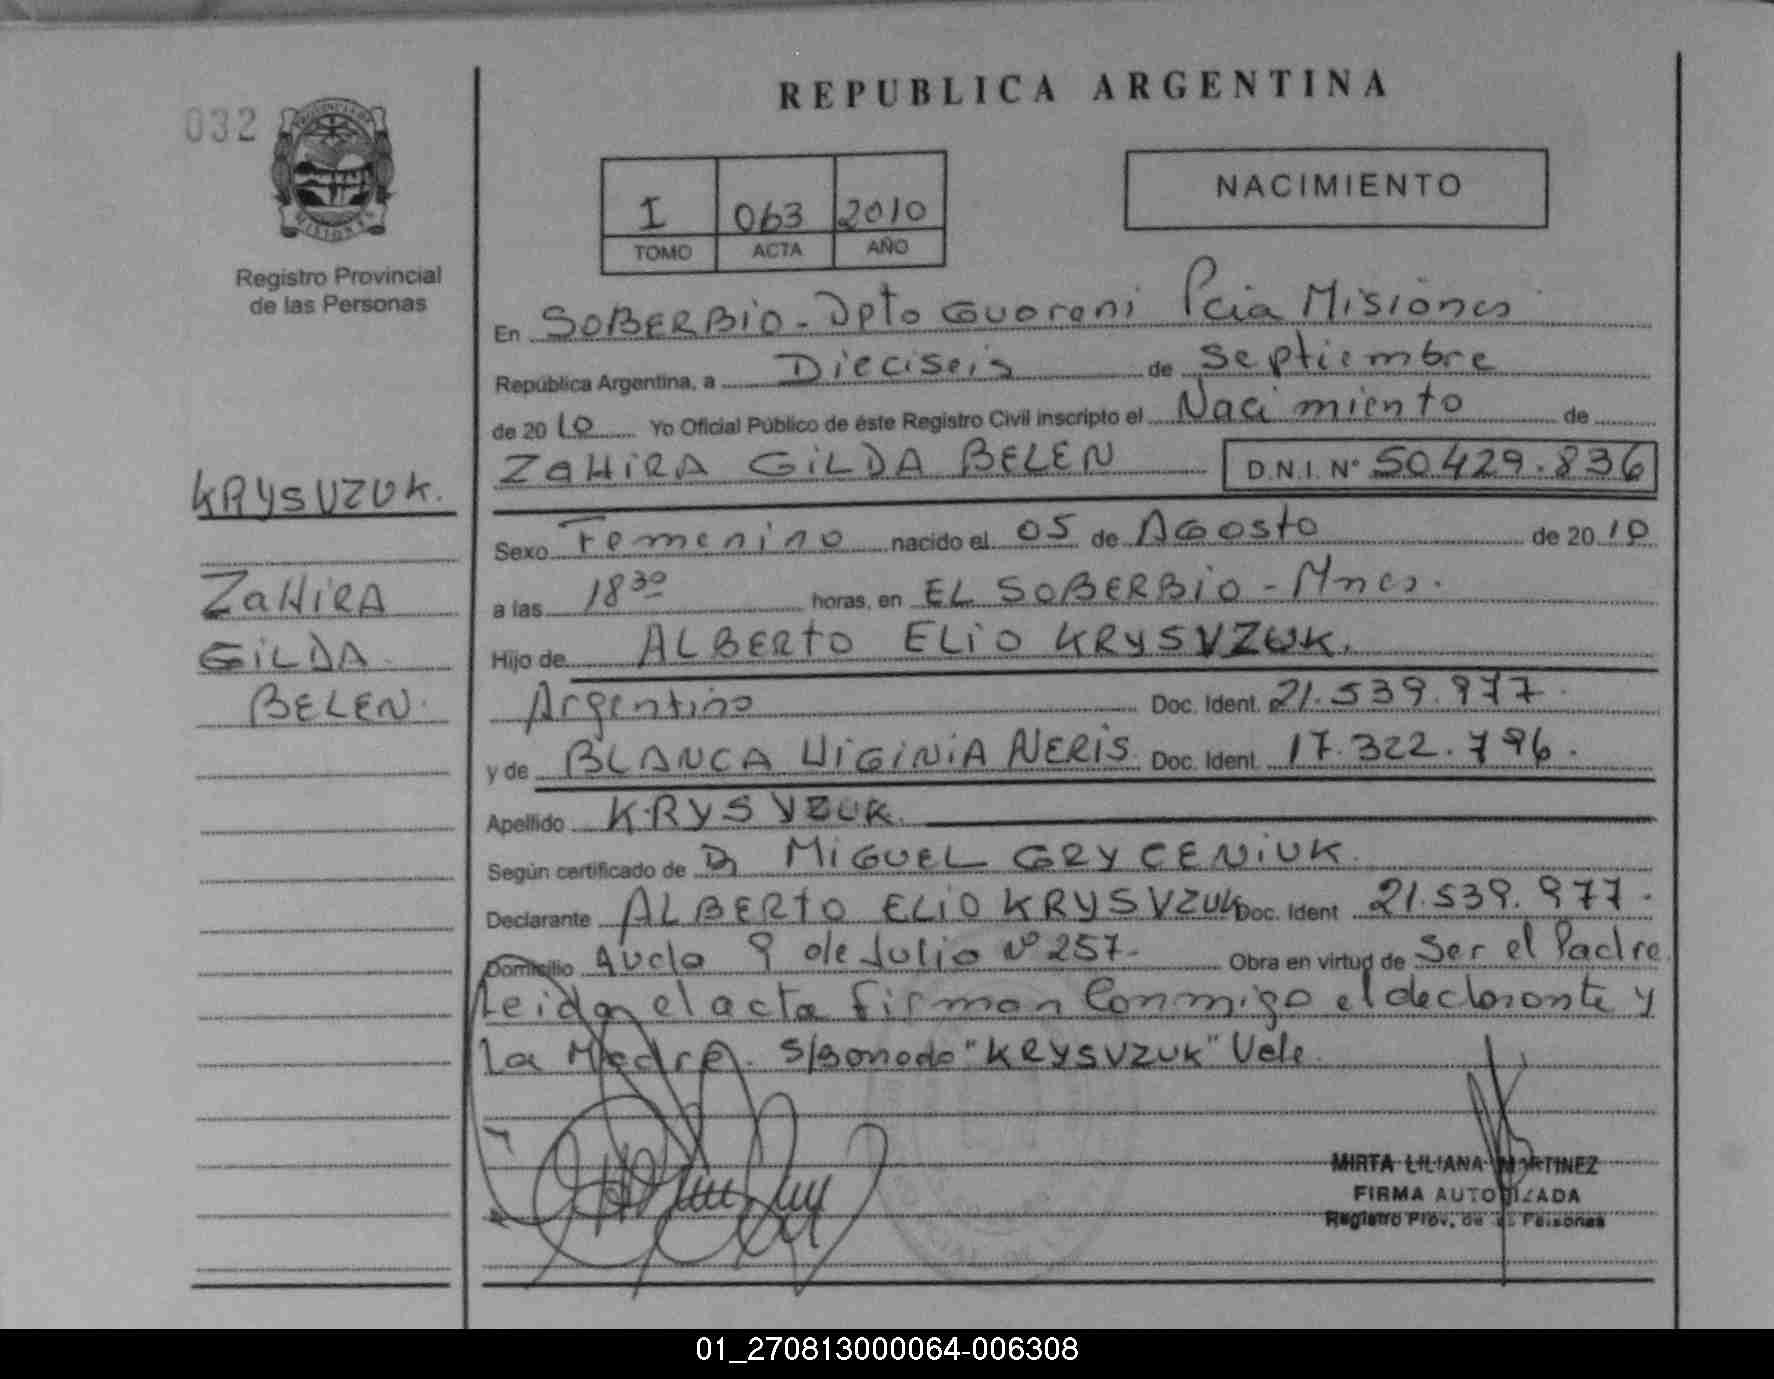 032
REPUBLICA ARGENTINA
I 063 2010
TOMO ACTA AÑO
NACIMIENTO
Registro Provincial
de las Personas
En SOBERBIO - Dpto Guarani Pcia Misiones
República Argentina, a Dieciseis de Septiembre
de 2010 Yo Oficial Público de éste Registro Civil inscripto el Nacimiento de
ZAHIRA GILDA BELEN D.N.I. N° 50429.836
KRYSVZUK.
ZAHIRA
GILDA
BELEN.
Sexo Femenino nacido el 05 de Agosto de 2010
a las 18 30 horas, en EL SOBERBIO - Mnes.
Hijo de ALBERTO ELIO KRYSVZUK.
Argentino Doc. Ident. 21.539.977.
y de BLANCA VIGINIA NERIS. Doc. Ident. 17.322.796.
Apellido KRYSVZUK.
Según certificado de Dr MIGUEL GRYCENIUK.
Declarante ALBERTO ELIO KRYSVZUK Doc. Ident 21.539.977.
Domicilio Avda 9 de Julio N° 257. Obra en virtud de Ser el Padre
Leida el acta firman Conmigo el declarante y
La Madre. S/Bonodo "KRYSVZUK" Vele.
MIRTA LILIANA MARTINEZ
FIRMA AUTORIZADA
Registro Prov. de las Personas
01_270813000064-006308